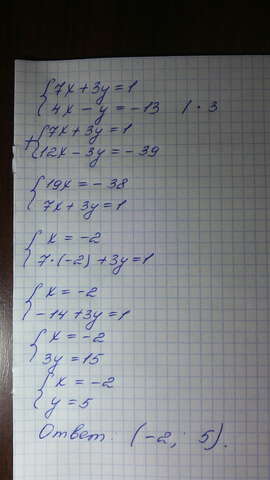 {7x + 3y = 1
{4x - y = -13 | · 3
+ {7x + 3y = 1
{12x - 3y = -39
{19x = -38
{7x + 3y = 1
{x = -2
{7·(-2) + 3y = 1
{x = -2
{-14 + 3y = 1
{x = -2
{3y = 15
{x = -2
{y = 5
Ответ: (-2; 5).